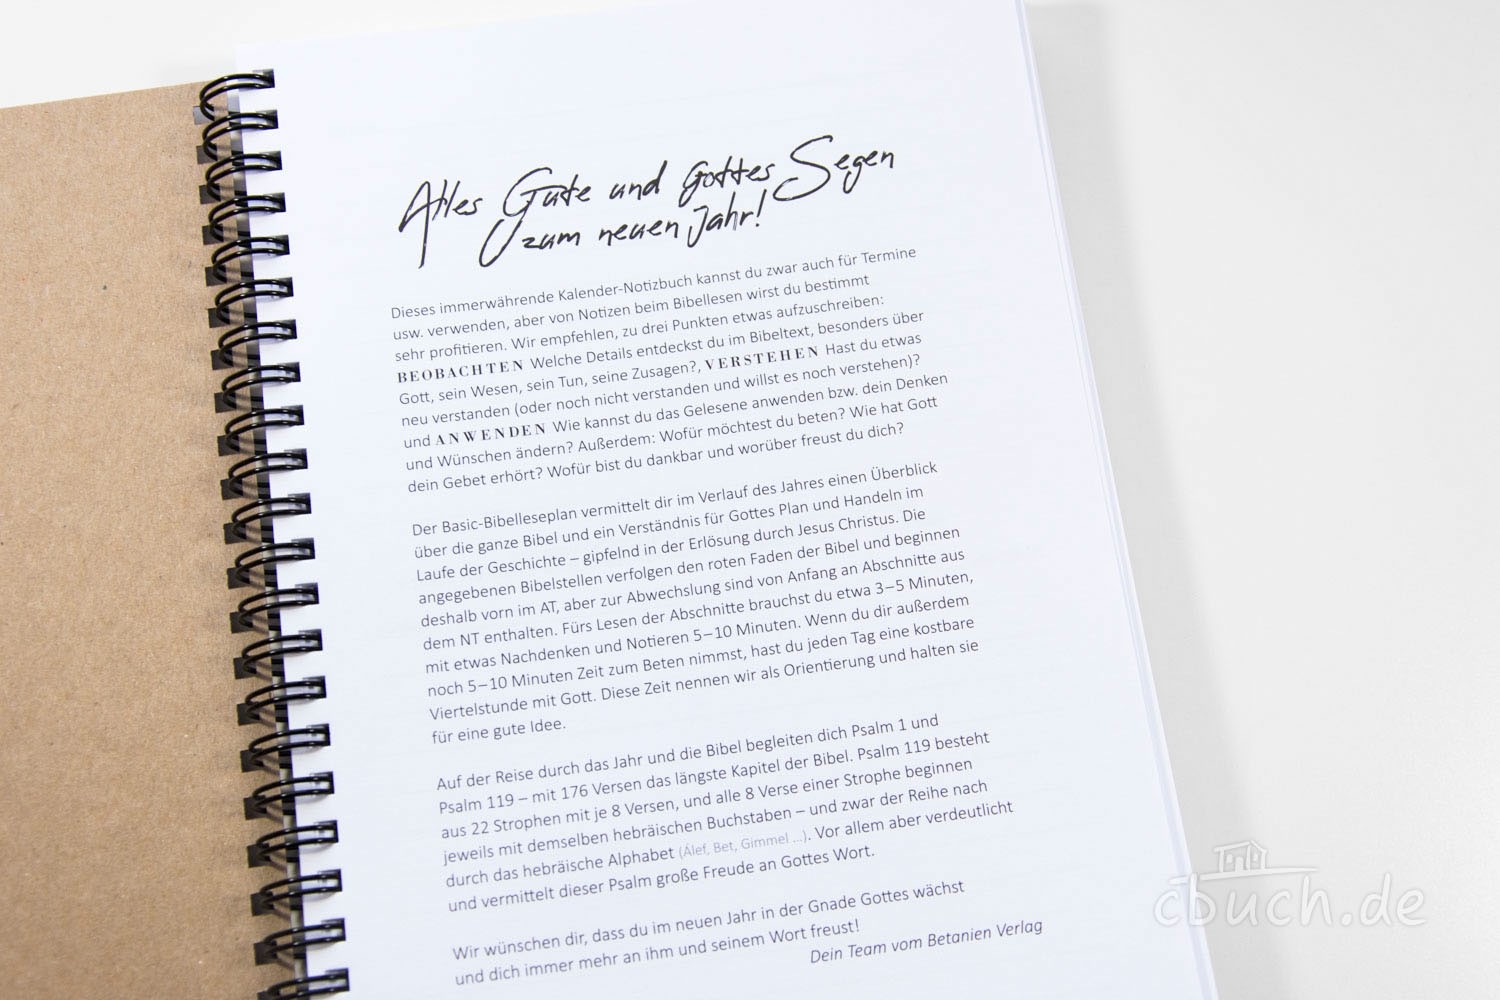 Alles Gute und Gottes Segen
zum neuen Jahr!
Dieses immerwährende Kalender-Notizbuch kannst du zwar auch für Termine
usw. verwenden, aber von Notizen beim Bibellesen wirst du bestimmt
sehr profitieren. Wir empfehlen, zu drei Punkten etwas aufzuschreiben:
BEOBACHTEN Welche Details entdeckst du im Bibeltext, besonders über
Gott, sein Wesen, sein Tun, seine Zusagen?, VERSTEHEN Hast du etwas
neu verstanden (oder noch nicht verstanden und willst es noch verstehen)?
und ANWENDEN Wie kannst du das Gelesene anwenden bzw. dein Denken
und Wünschen ändern? Außerdem: Wofür möchtest du beten? Wie hat Gott
dein Gebet erhört? Wofür bist du dankbar und worüber freust du dich?
Der Basic-Bibelleseplan vermittelt dir im Verlauf des Jahres einen Überblick
über die ganze Bibel und ein Verständnis für Gottes Plan und Handeln im
Laufe der Geschichte – gipfelnd in der Erlösung durch Jesus Christus. Die
angegebenen Bibelstellen verfolgen den roten Faden der Bibel und beginnen
deshalb vorn im AT, aber zur Abwechslung sind von Anfang an Abschnitte aus
dem NT enthalten. Fürs Lesen der Abschnitte brauchst du etwa 3–5 Minuten,
mit etwas Nachdenken und Notieren 5–10 Minuten. Wenn du dir außerdem
noch 5–10 Minuten Zeit zum Beten nimmst, hast du jeden Tag eine kostbare
Viertelstunde mit Gott. Diese Zeit nennen wir als Orientierung und halten sie
für eine gute Idee.
Auf der Reise durch das Jahr und die Bibel begleiten dich Psalm 1 und
Psalm 119 – mit 176 Versen das längste Kapitel der Bibel. Psalm 119 besteht
aus 22 Strophen mit je 8 Versen, und alle 8 Verse einer Strophe beginnen
jeweils mit demselben hebräischen Buchstaben – und zwar der Reihe nach
durch das hebräische Alphabet (Álef, Bet, Gimmel ...). Vor allem aber verdeutlicht
und vermittelt dieser Psalm große Freude an Gottes Wort.
Wir wünschen dir, dass du im neuen Jahr in der Gnade Gottes wächst
und dich immer mehr an ihm und seinem Wort freust!
Dein Team vom Betanien Verlag
cbuch.de